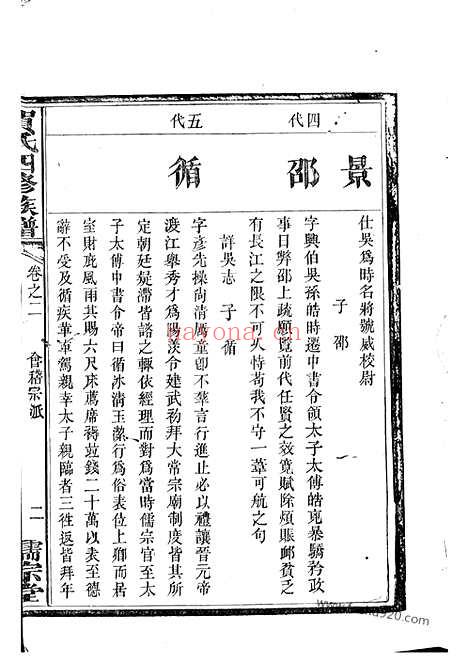 四代
五代
景
仕吳爲時名將號威校尉
子邵
邵
字興伯吳孫皓時遷中書令領太子太傅皓兇暴驕矜政
事日弊邵上疏願覽前代任賢之效寬賦除煩賑邮貧乏
有長江之限不可久恃苟我不守一葦可航之句
詳吳志 子循
循
字彥先操尚清厲童齓不羣言行進止必以禮讓晉元帝
渡江舉秀才爲陽羨令建武初拜大常宗廟制度皆其所
定朝廷疑滯皆諮之輒依經理而對爲當時儒宗官至太
子太傅中書令帝曰循冰清玉潔行爲俗表位上卿而居
室財庇風雨其賜六尺床薦席褥竝錢二十萬以表至德
辭不受及循疾篳車駕親幸太子親臨者三徃返皆拜年
賀氏四修族譜
卷之二
會稽宗派
二
儒宗堂